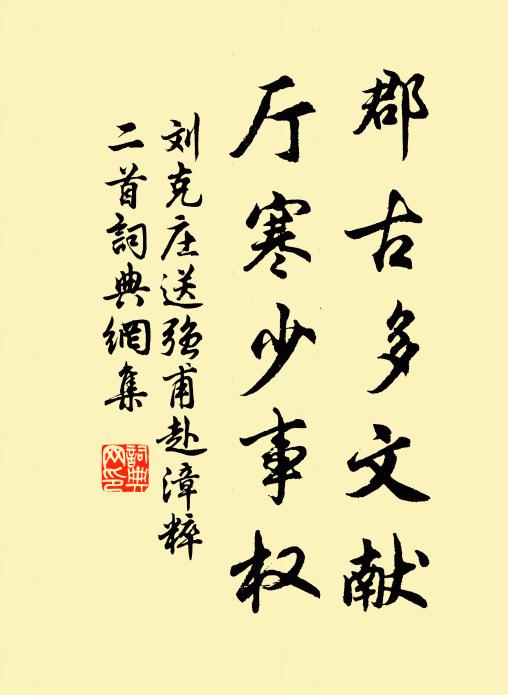 郡古多文献
厅寒少事权
刘克庄送强甫赴漳粹
二首詞典網集
詞典
网印